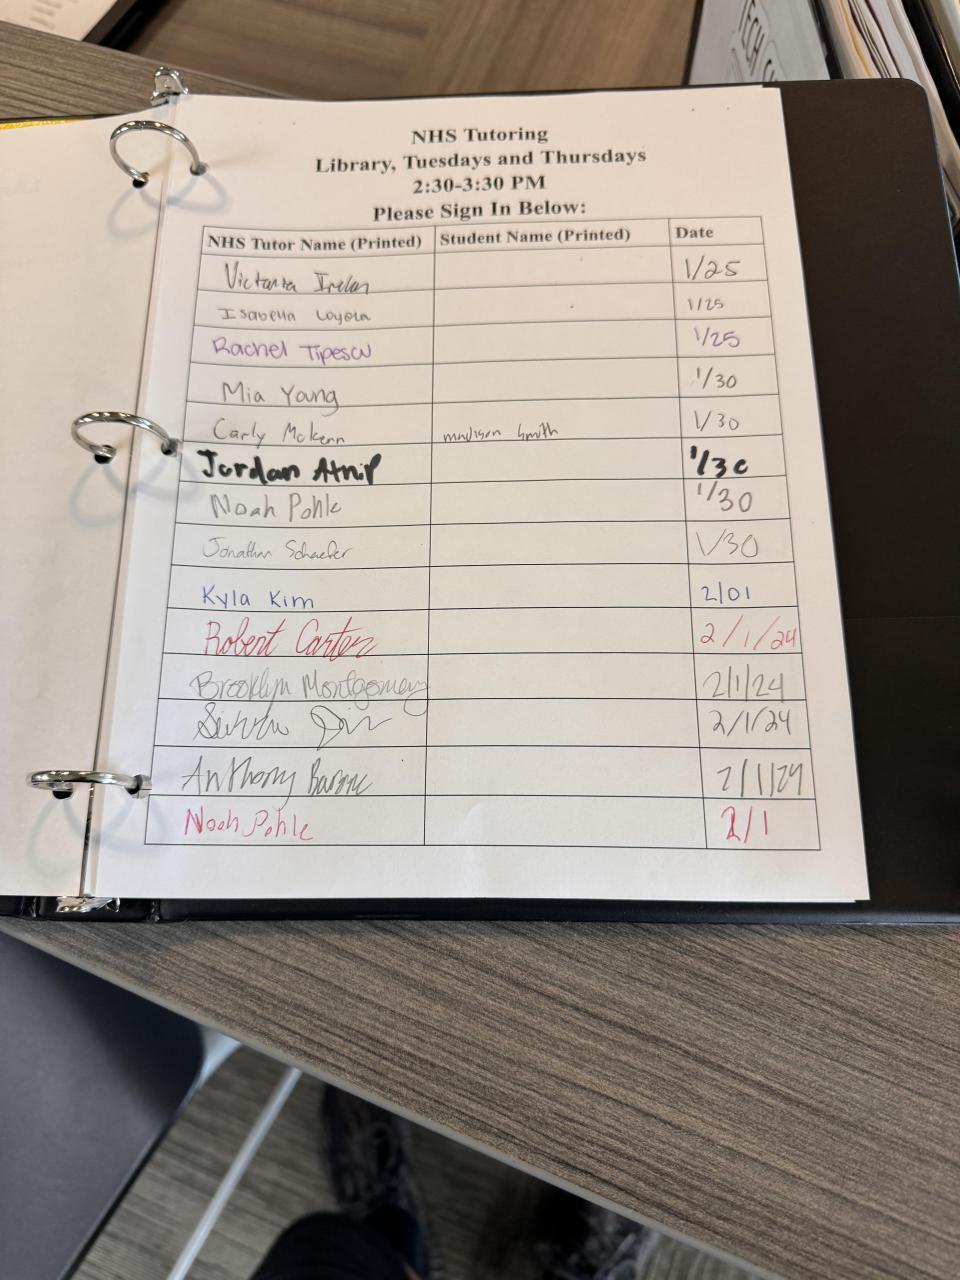 TECH
NHS Tutoring
Library, Tuesdays and Thursdays
2:30-3:30 PM
Please Sign In Below:
NHS Tutor Name (Printed) Student Name (Printed) Date
Victoria 1/25
Isabella Loyola 1/25
Rachel Tipescu 1/25
Mia Young 1/30
Carly McKenn madison Smith 1/30
Jordan Atnip 1/30
Noah Pohle 1/30
Jonathan Schaefer 1/30
Kyla Kim 2/01
Robert Carter 2/1/24
Brooklyn Montgomery 2/1/24
2/1/24
Anthony 2/1/24
Noah Pohle 2/1